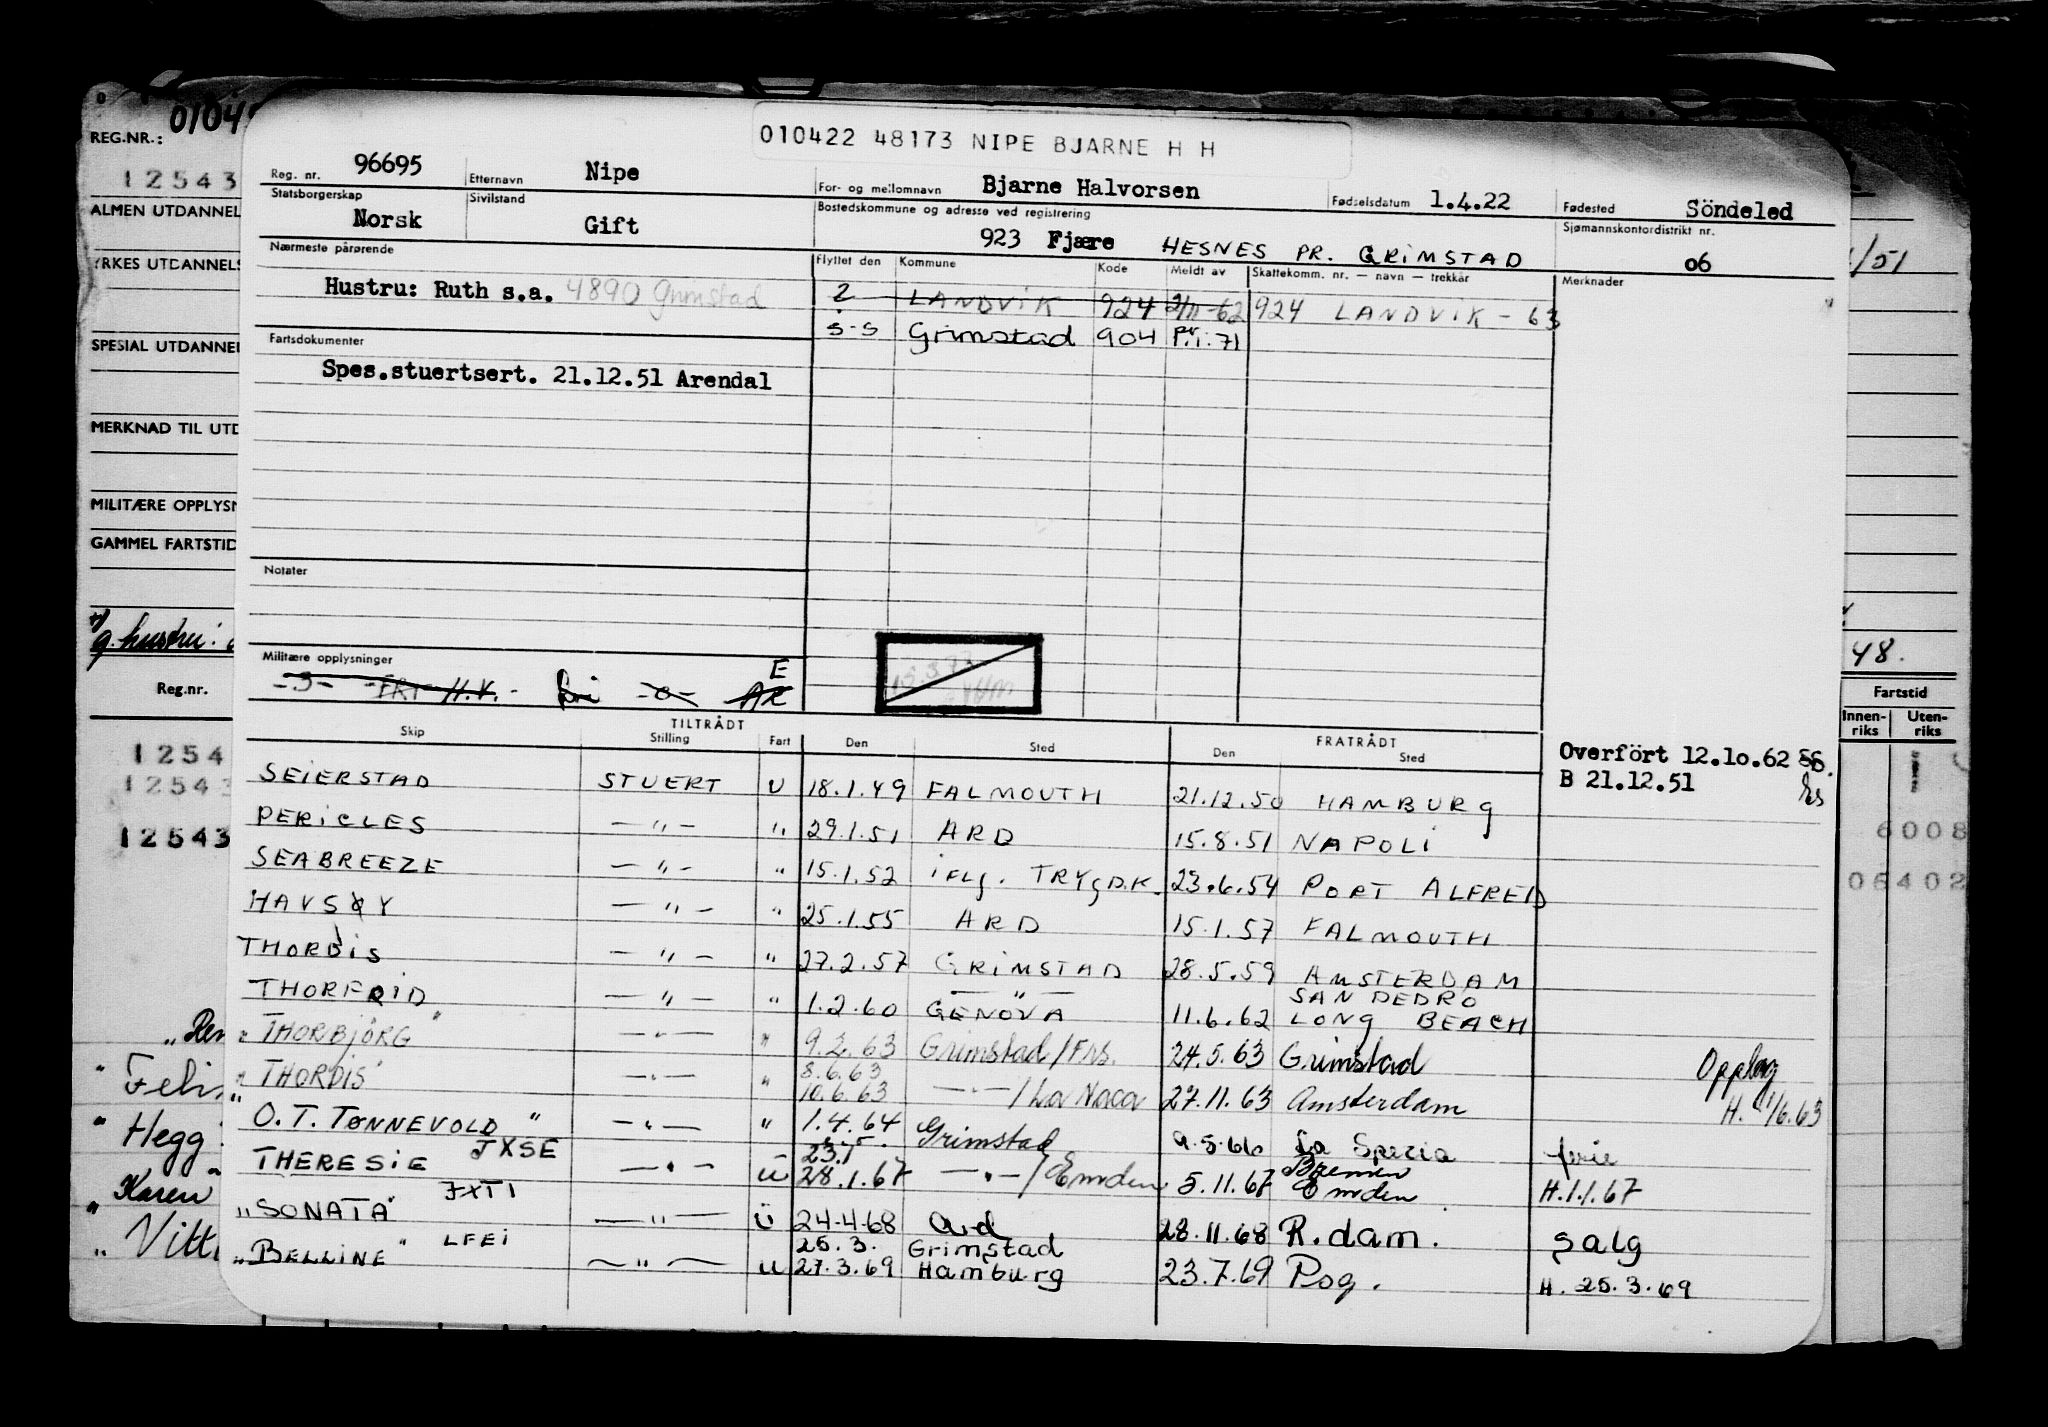 REG.NR.:
12543
ALMEN UTDANNEL
YRKES UTDANNELS
SPESIAL UTDANNEL
MERKNAD TIL UTD
MILITÆRE OPPLYSN
GAMMEL FARTSTID
g. hustru:
Reg.nr.
1254
12543
12543
Feli
Hegg
Karen
Vitt
010422 48173 NIPE BJARNE H H
Reg. nr. 96695 Etternavn Nipe For- og mellomnavn Bjarne Halvorsen Fødselsdatum 1.4.22 Fødested Söndeled
Statsborgerskap Norsk Sivilstand Gift Bostedskommune og adresse ved registrering 923 Fjære HESNES PR. GRIMSTAD Sjømannskontordistrikt nr. 06
Nærmeste pårørende Flyttet den Kommune Kode Meldt av Skattekomm. nr. — navn — trekkår Merknader
Hustru: Ruth s.a. 4890 Grimstad 2 LANDVIK 924 2/11-62 924 LANDVIK - 63
S-S Grimstad 904 Pr. 1. 71
Fartsdokumenter
Spes.stuertsert. 21.12.51 Arendal
Notater
Militære opplysninger
E
H.V.
TILTRÅDT FRATRÅDT
Skip Stilling Fart Den Sted Den Sted
Overfört 12.10.62 SS.
B 21.12.51
SEIERSTAD STUERT U 18.1.49 FALMOUTH 21.12.50 HAMBURG
PERICLES — " — " 29.1.51 ARD 15.8.51 NAPOLI
SEABREEZE — " — " 15.1.52 iflg. TRYGD.K. 23.6.54 PORT ALFRED
HAVSØY — " — " 25.1.55 ARD 15.1.57 FALMOUTH
THORDIS — " — " 27.2.57 GRIMSTAD 28.5.59 AMSTERDAM
THORFRID — " — " 1.2.60 — " — GENOVA 11.6.62 SAN PEDRO LONG BEACH
" THORBJØRG " — " — " 9.2.63 Grimstad/Frs. 24.5.63 Grimstad Opplag
" THORDIS " — " — " 8.6.63 10.6.63 — " — / La Naca 27.11.63 Amsterdam H. 1/6.63
" O.T. TØNNEVOLD " — " — " 1.4.64 Grimstad 9.5.66 La Spezia ferie
THERESIE JXSE — " — U 23.1 28.1.67 — " — / Emden 5.11.67 Bremen Emden H.1.1.67
"SONATA" JXTI — " — U 24.4.68 Ard 28.11.68 R.dam. Salg
"BELLINE" LFEI — " — U 25.3. 27.3.69 Grimstad Hamburg 23.7.69 H. 25.3.69
/51
48.
Fartstid
Innen-riks Uten-riks
6008
06402